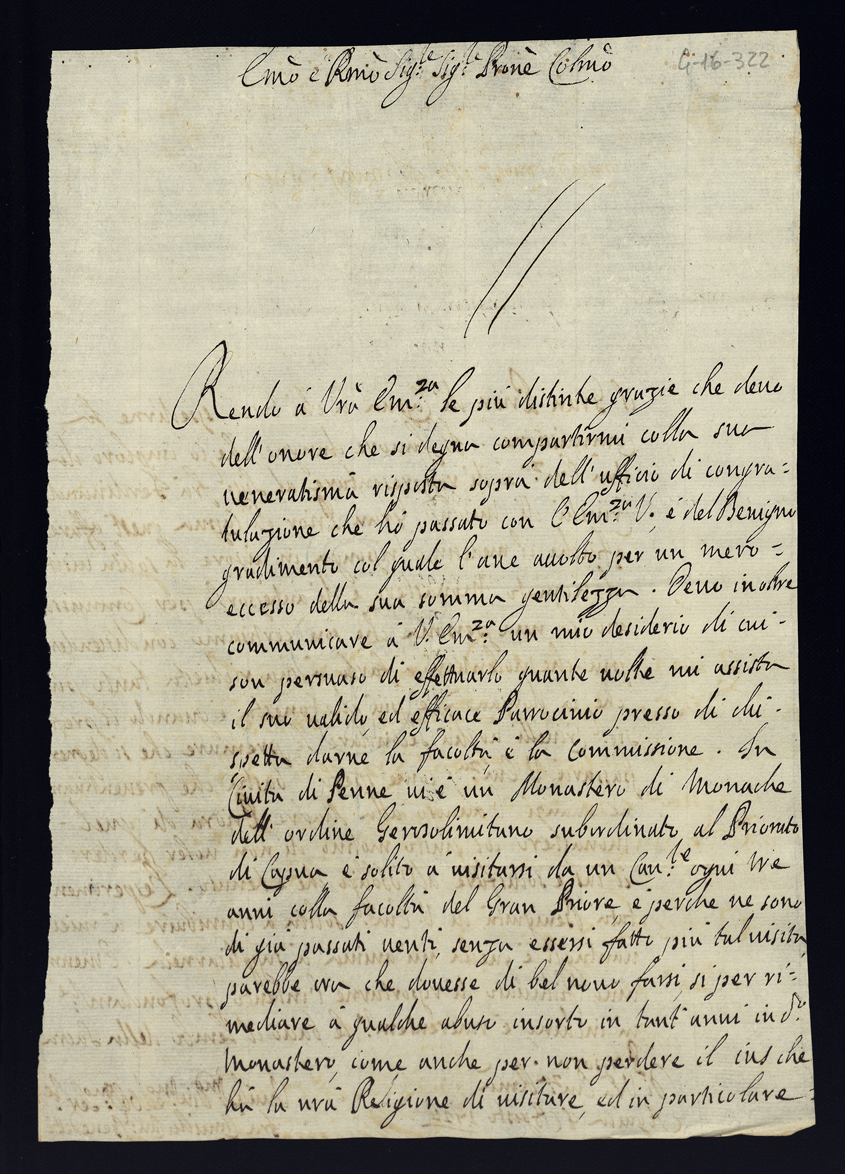 G-16-322
Emõ e Rmõ Sig.re Sig.re Pronẽ Colmõ
Rendo á Vrã Em.za le piú distinte grazie che devo
dell'onore che si degna compartirmi colla sua
veneratismã risposta soprà dell'ufficio di congra=
tulazione che hó passato con l'Em.za V., é del Benigno
gradimento col quale l'ave accolto per un mero=
eccesso della sua somma gentilezza. Devo inoltre
communicare á V. Em.za un mio desiderio di cui-
son persuaso di effettuarlo quante volte mi assista
il suo valido, ed efficace Patrocinio presso di chi-
spetta darne la facoltá é la Commissione. In
Civita di Penne vi é un Monastero di Monache
dell'ordine Gerosolimitano subordinato al Priorato
di Capua é solito á visitarsi da un Cav.re ogni tre
anni colla facoltá del Gran Priore, é perche ne sono
di giá passati venti, senza essersi fatto piú tal visita,
parebbe ora che dovesse di bel novo farsi, si per ri=
mediare á qualche abuso insorto in tant'anni in d.o
Monastero, come anche per non perdere il ius che
há la nrã Religione di visitare, ed in particolare=